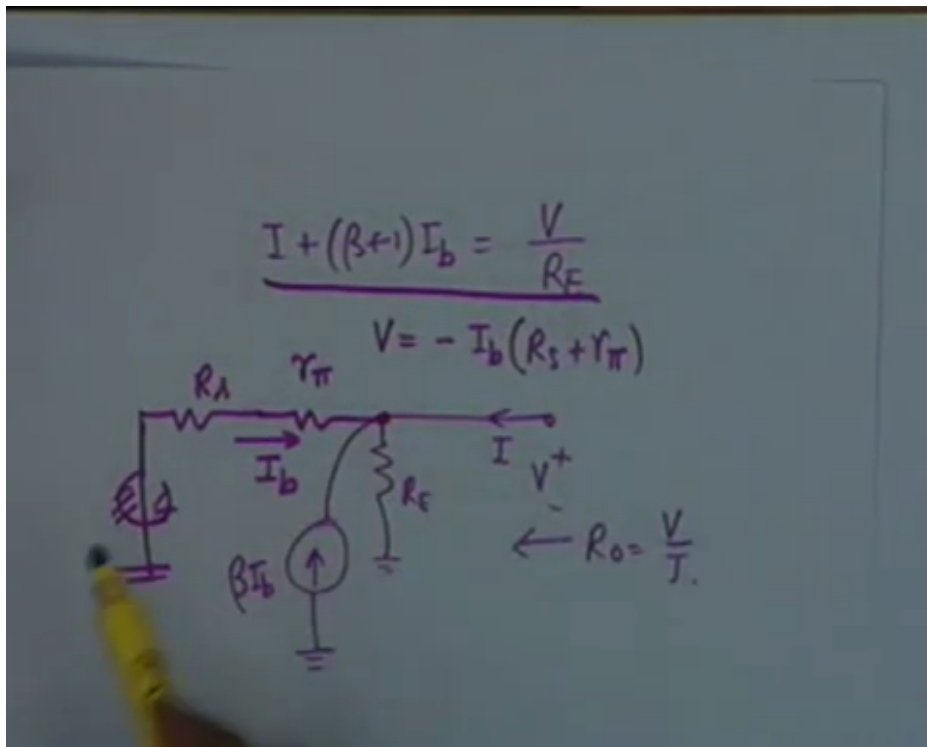 I + (β+1) I_b = V / R_E
V = - I_b (R_s + r_π)
R_s
r_π
I_b
I
V +
-
R_E
βI_b
← R_o = V / I.